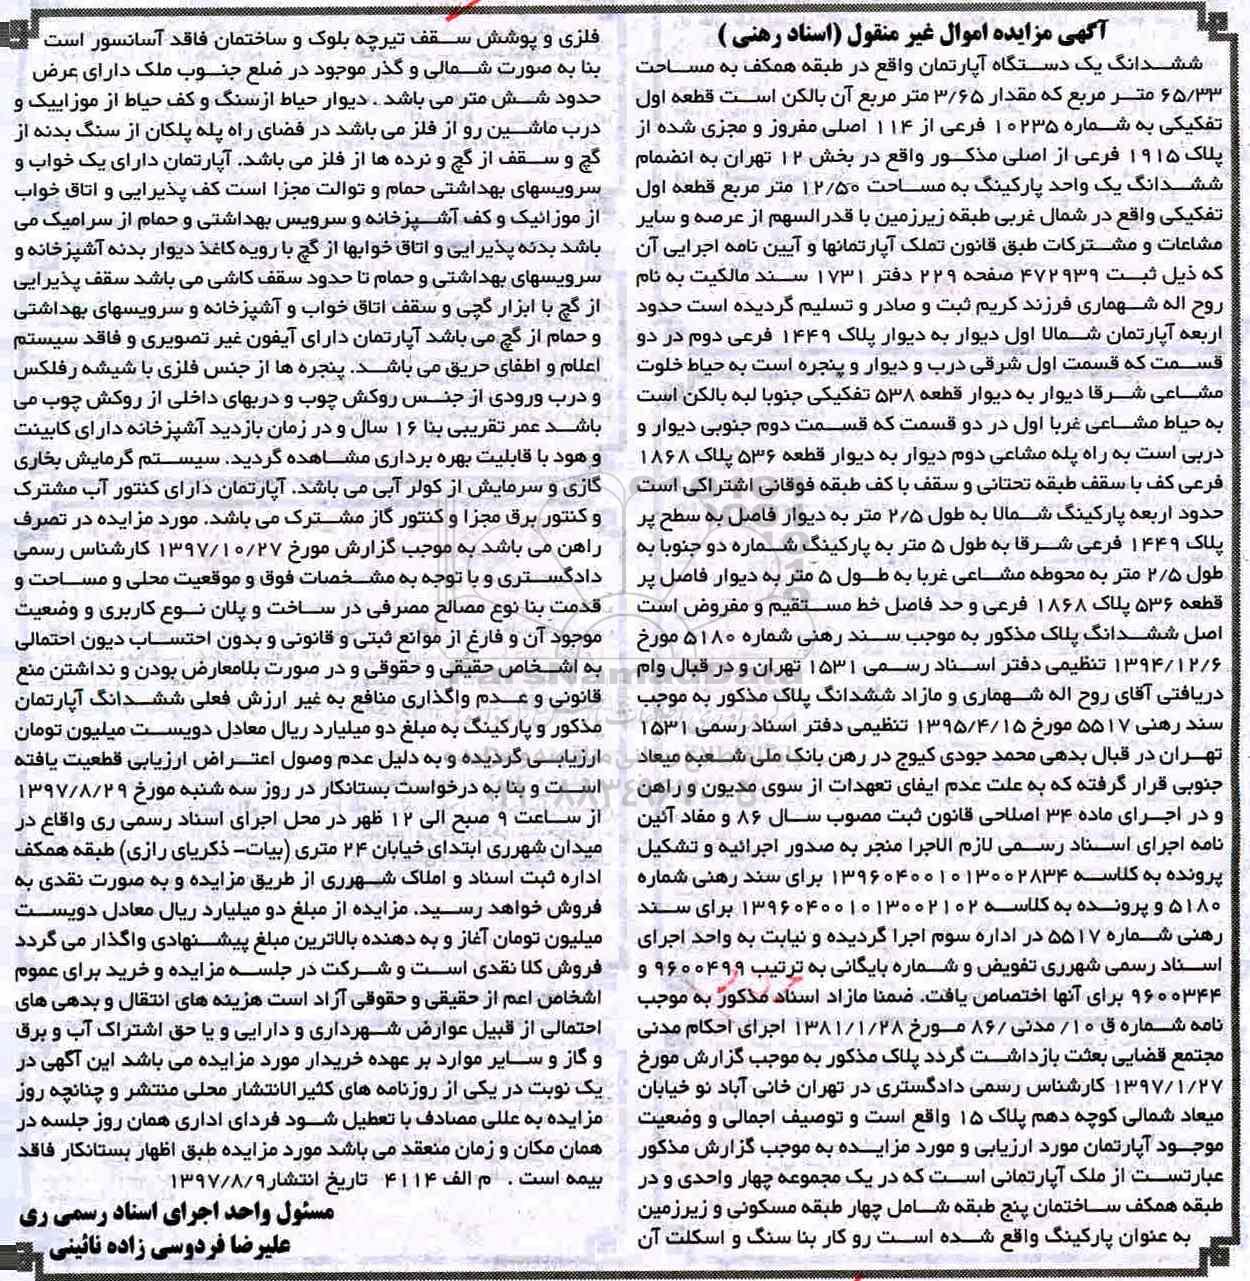 آگهی مزایده اموال غیر منقول (اسناد رهنی )
ششدانگ یک دستگاه آپارتمان واقع در طبقه همکف به مساحت
۶۵/۳۳ متر مربع که مقدار ۳/۶۵ متر مربع آن بالکن است قطعه اول
تفکیکی به شماره ۱۰۲۳۵ فرعی از ۱۱۴ اصلی مفروز و مجزی شده از
پلاک ۱۹۱۵ فرعی از اصلی مذکور واقع در بخش ۱۲ تهران به انضمام
ششدانگ یک واحد پارکینگ به مساحت ۱۲/۵۰ متر مربع قطعه اول
تفکیکی واقع در شمال غربی طبقه زیرزمین با قدرالسهم از عرصه و سایر
مشاعات و مشترکات طبق قانون تملک آپارتمانها و آیین نامه اجرایی آن
که ذیل ثبت ۴۷۲۹۳۹ صفحه ۲۲۹ دفتر ۱۷۳۱ سند مالکیت به نام
روح اله شهماری فرزند کریم ثبت و صادر و تسلیم گردیده است حدود
اربعه آپارتمان شمالا اول دیوار به دیوار پلاک ۱۴۴۹ فرعی دوم در دو
قسمت که قسمت اول شرقی درب و دیوار و پنجره است به حیاط خلوت
مشاعی شرقا دیوار به دیوار قطعه ۵۳۸ تفکیکی جنوبا لبه بالکن است
به حیاط مشاعی غربا اول در دو قسمت که قسمت دوم جنوبی دیوار و
دربی است به راه پله مشاعی دوم دیوار به دیوار قطعه ۵۳۶ پلاک ۱۸۶۸
فرعی کف با سقف طبقه تحتانی و سقف با کف طبقه فوقانی اشتراکی است
حدود اربعه پارکینگ شمالا به طول ۲/۵ متر به دیوار فاصل به سطح پر
پلاک ۱۴۴۹ فرعی شرقا به طول ۵ متر به پارکینگ شماره دو جنوبا به
طول ۲/۵ متر به محوطه مشاعی غربا به طول ۵ متر به دیوار فاصل پر
قطعه ۵۳۶ پلاک ۱۸۶۸ فرعی و حد فاصل خط مستقیم و مفروض است
اصل ششدانگ پلاک مذکور به موجب سند رهنی شماره ۵۱۸۰ مورخ
۱۳۹۴/۱۲/۶ تنظیمی دفتر اسناد رسمی ۱۵۳۱ تهران و در قبال وام
دریافتی آقای روح اله شهماری و مازاد ششدانگ پلاک مذکور به موجب
سند رهنی ۵۵۱۷ مورخ ۱۳۹۵/۴/۱۵ تنظیمی دفتر اسناد رسمی ۱۵۳۱
تهران در قبال بدهی محمد جودی کیوج در رهن بانک ملی شعبه میعاد
جنوبی قرار گرفته که به علت عدم ایفای تعهدات از سوی مدیون و راهن
و در اجرای ماده ۳۴ اصلاحی قانون ثبت مصوب سال ۸۶ و مفاد آئین
نامه اجرای اسناد رسمی لازم الاجرا منجر به صدور اجرائیه و تشکیل
پرونده به کلاسه ۱۳۹۶۰۴۰۰۱۰۱۳۰۰۲۸۳۴ برای سند رهنی شماره
۵۱۸۰ و پرونده به کلاسه ۱۳۹۶۰۴۰۰۱۰۱۳۰۰۲۱۰۲ برای سند
رهنی شماره ۵۵۱۷ در اداره سوم اجرا گردیده و نیابت به واحد اجرای
اسناد رسمی شهرری تفویض و شماره بایگانی به ترتیب ۹۶۰۰۴۹۹ و
۹۶۰۰۳۴۴ برای آنها اختصاص یافت. ضمنا مازاد اسناد مذکور به موجب
نامه شماره ق ۱۰/ مدنی /۸۶ مورخ ۱۳۸۱/۱/۲۸ اجرای احکام مدنی
مجتمع قضایی بعثت بازداشت گردد پلاک مذکور به موجب گزارش مورخ
۱۳۹۷/۱/۲۷ کارشناس رسمی دادگستری در تهران خانی آباد نو خیابان
میعاد شمالی کوچه دهم پلاک ۱۵ واقع است و توصیف اجمالی و وضعیت
موجود آپارتمان مورد ارزیابی و مورد مزایده به موجب گزارش مذکور
عبارتست از ملک آپارتمانی است که در یک مجموعه چهار واحدی و در
طبقه همکف ساختمان پنج طبقه شامل چهار طبقه مسکونی و زیرزمین
به عنوان پارکینگ واقع شده است رو کار بنا سنگ و اسکلت آن
فلزی و پوشش سقف تیرچه بلوک و ساختمان فاقد آسانسور است
بنا به صورت شمالی و گذر موجود در ضلع جنوب ملک دارای عرض
حدود شش متر می باشد . دیوار حیاط ازسنگ و کف حیاط از موزاییک و
درب ماشین رو از فلز می باشد در فضای راه پله پلکان از سنگ بدنه از
گچ و سقف از گچ و نرده ها از فلز می باشد. آپارتمان دارای یک خواب و
سرویسهای بهداشتی حمام و توالت مجزا است کف پذیرایی و اتاق خواب
از موزائیک و کف آشپزخانه و سرویس بهداشتی و حمام از سرامیک می
باشد بدنه پذیرایی و اتاق خوابها از گچ با رویه کاغذ دیوار بدنه آشپزخانه و
سرویسهای بهداشتی و حمام تا حدود سقف کاشی می باشد سقف پذیرایی
از گچ با ابزار گچی و سقف اتاق خواب و آشپزخانه و سرویسهای بهداشتی
و حمام از گچ می باشد آپارتمان دارای آیفون غیر تصویری و فاقد سیستم
اعلام و اطفای حریق می باشد. پنجره ها از جنس فلزی با شیشه رفلکس
و درب ورودی از جنس روکش چوب و دربهای داخلی از روکش چوب می
باشد عمر تقریبی بنا ۱۶ سال و در زمان بازدید آشپزخانه دارای کابینت
و هود با قابلیت بهره برداری مشاهده گردید. سیستم گرمایش بخاری
گازی و سرمایش از کولر آبی می باشد. آپارتمان دارای کنتور آب مشترک
و کنتور برق مجزا و کنتور گاز مشترک می باشد. مورد مزایده در تصرف
راهن می باشد به موجب گزارش مورخ ۱۳۹۷/۱۰/۲۷ کارشناس رسمی
دادگستری و با توجه به مشخصات فوق و موقعیت محلی و مساحت و
قدمت بنا نوع مصالح مصرفی در ساخت و پلان نوع کاربری و وضعیت
موجود آن و فارغ از موانع ثبتی و قانونی و بدون احتساب دیون احتمالی
به اشخاص حقیقی و حقوقی و در صورت بلامعارض بودن و نداشتن منع
قانونی و عدم واگذاری منافع به غیر ارزش فعلی ششدانگ آپارتمان
مذکور و پارکینگ به مبلغ دو میلیارد ریال معادل دویست میلیون تومان
ارزیابی گردیده و به دلیل عدم وصول اعتراض ارزیابی قطعیت یافته
است و بنا به درخواست بستانکار در روز سه شنبه مورخ ۱۳۹۷/۸/۲۹
از ساعت ۹ صبح الی ۱۲ ظهر در محل اجرای اسناد رسمی ری واقاع در
میدان شهرری ابتدای خیابان ۲۴ متری (بیات- ذکریای رازی) طبقه همکف
اداره ثبت اسناد و املاک شهرری از طریق مزایده و به صورت نقدی به
فروش خواهد رسید. مزایده از مبلغ دو میلیارد ریال معادل دویست
میلیون تومان آغاز و به دهنده بالاترین مبلغ پیشنهادی واگذار می گردد
فروش کلا نقدی است و شرکت در جلسه مزایده و خرید برای عموم
اشخاص اعم از حقیقی و حقوقی آزاد است هزینه های انتقال و بدهی های
احتمالی از قبیل عوارض شهرداری و دارایی و یا حق اشتراک آب و برق
و گاز و سایر موارد بر عهده خریدار مورد مزایده می باشد این آگهی در
یک نوبت در یکی از روزنامه های کثیرالانتشار محلی منتشر و چنانچه روز
مزایده به عللی مصادف با تعطیل شود فردای اداری همان روز جلسه در
همان مکان و زمان منعقد می باشد مورد مزایده طبق اظهار بستانکار فاقد
بیمه است . م الف ۴۱۱۴ تاریخ انتشار۱۳۹۷/۸/۹
مسئول واحد اجرای اسناد رسمی ری
علیرضا فردوسی زاده نائینی
ParsNamadData